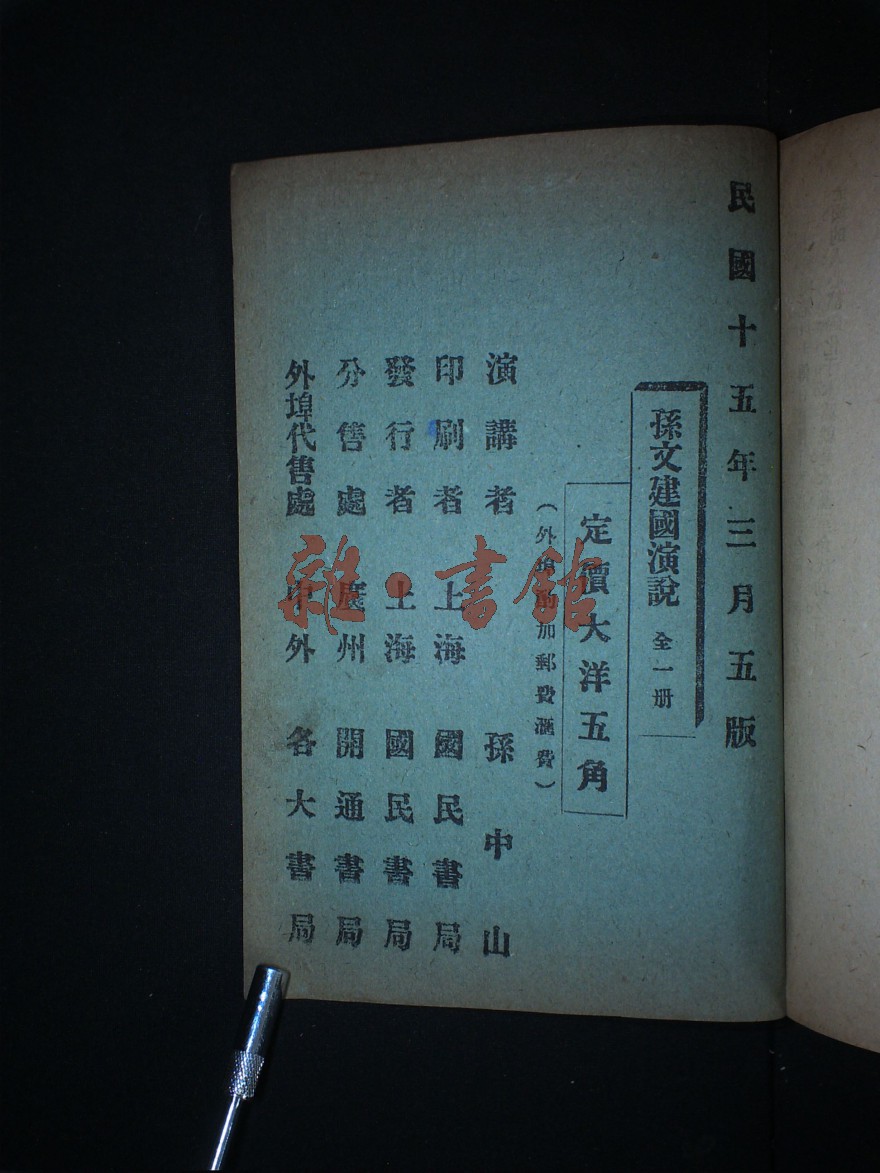 民國十五年三月五版
孫文建國演說 全一册
定價大洋五角
（外埠酌加郵費滙費）
演講者 孫中山
印刷者 上海 國民書局
發行者 上海 國民書局
分售處 廣州 開通書局
外埠代售處 中外 各大書局
雜·書館